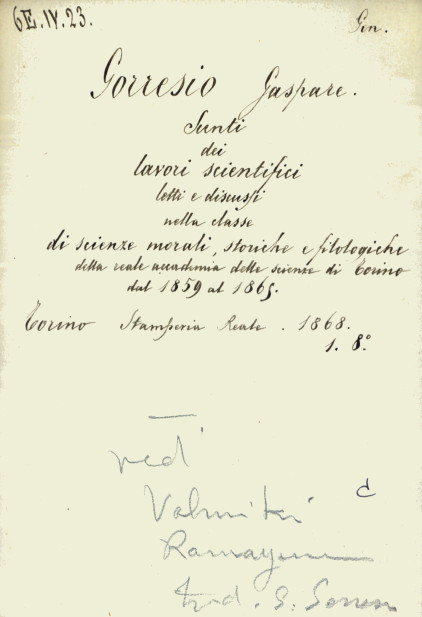 6E.IV.23.
Gen.
Gorresio Gaspare.
Sunti
dei
lavori scientifici
letti e discussi
nella classe
di scienze morali, storiche e filologiche
della reale accademia delle scienze di Torino
dal 1859 al 1865.
Torino Stamperia Reale. 1868.
1. 8°.
vedi
Valmiki
C
Ramayana
trad. G. Gorresio